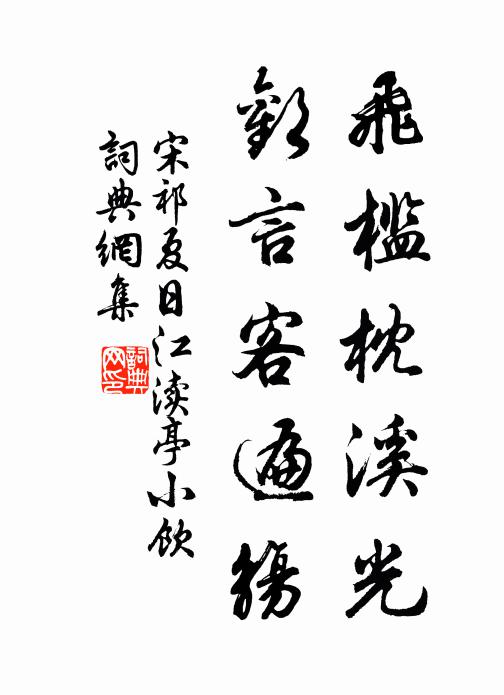 飛檻枕溪光
歡言客遍觴
宋祁夏日江渎亭小飲
詞典網集
詞典网印